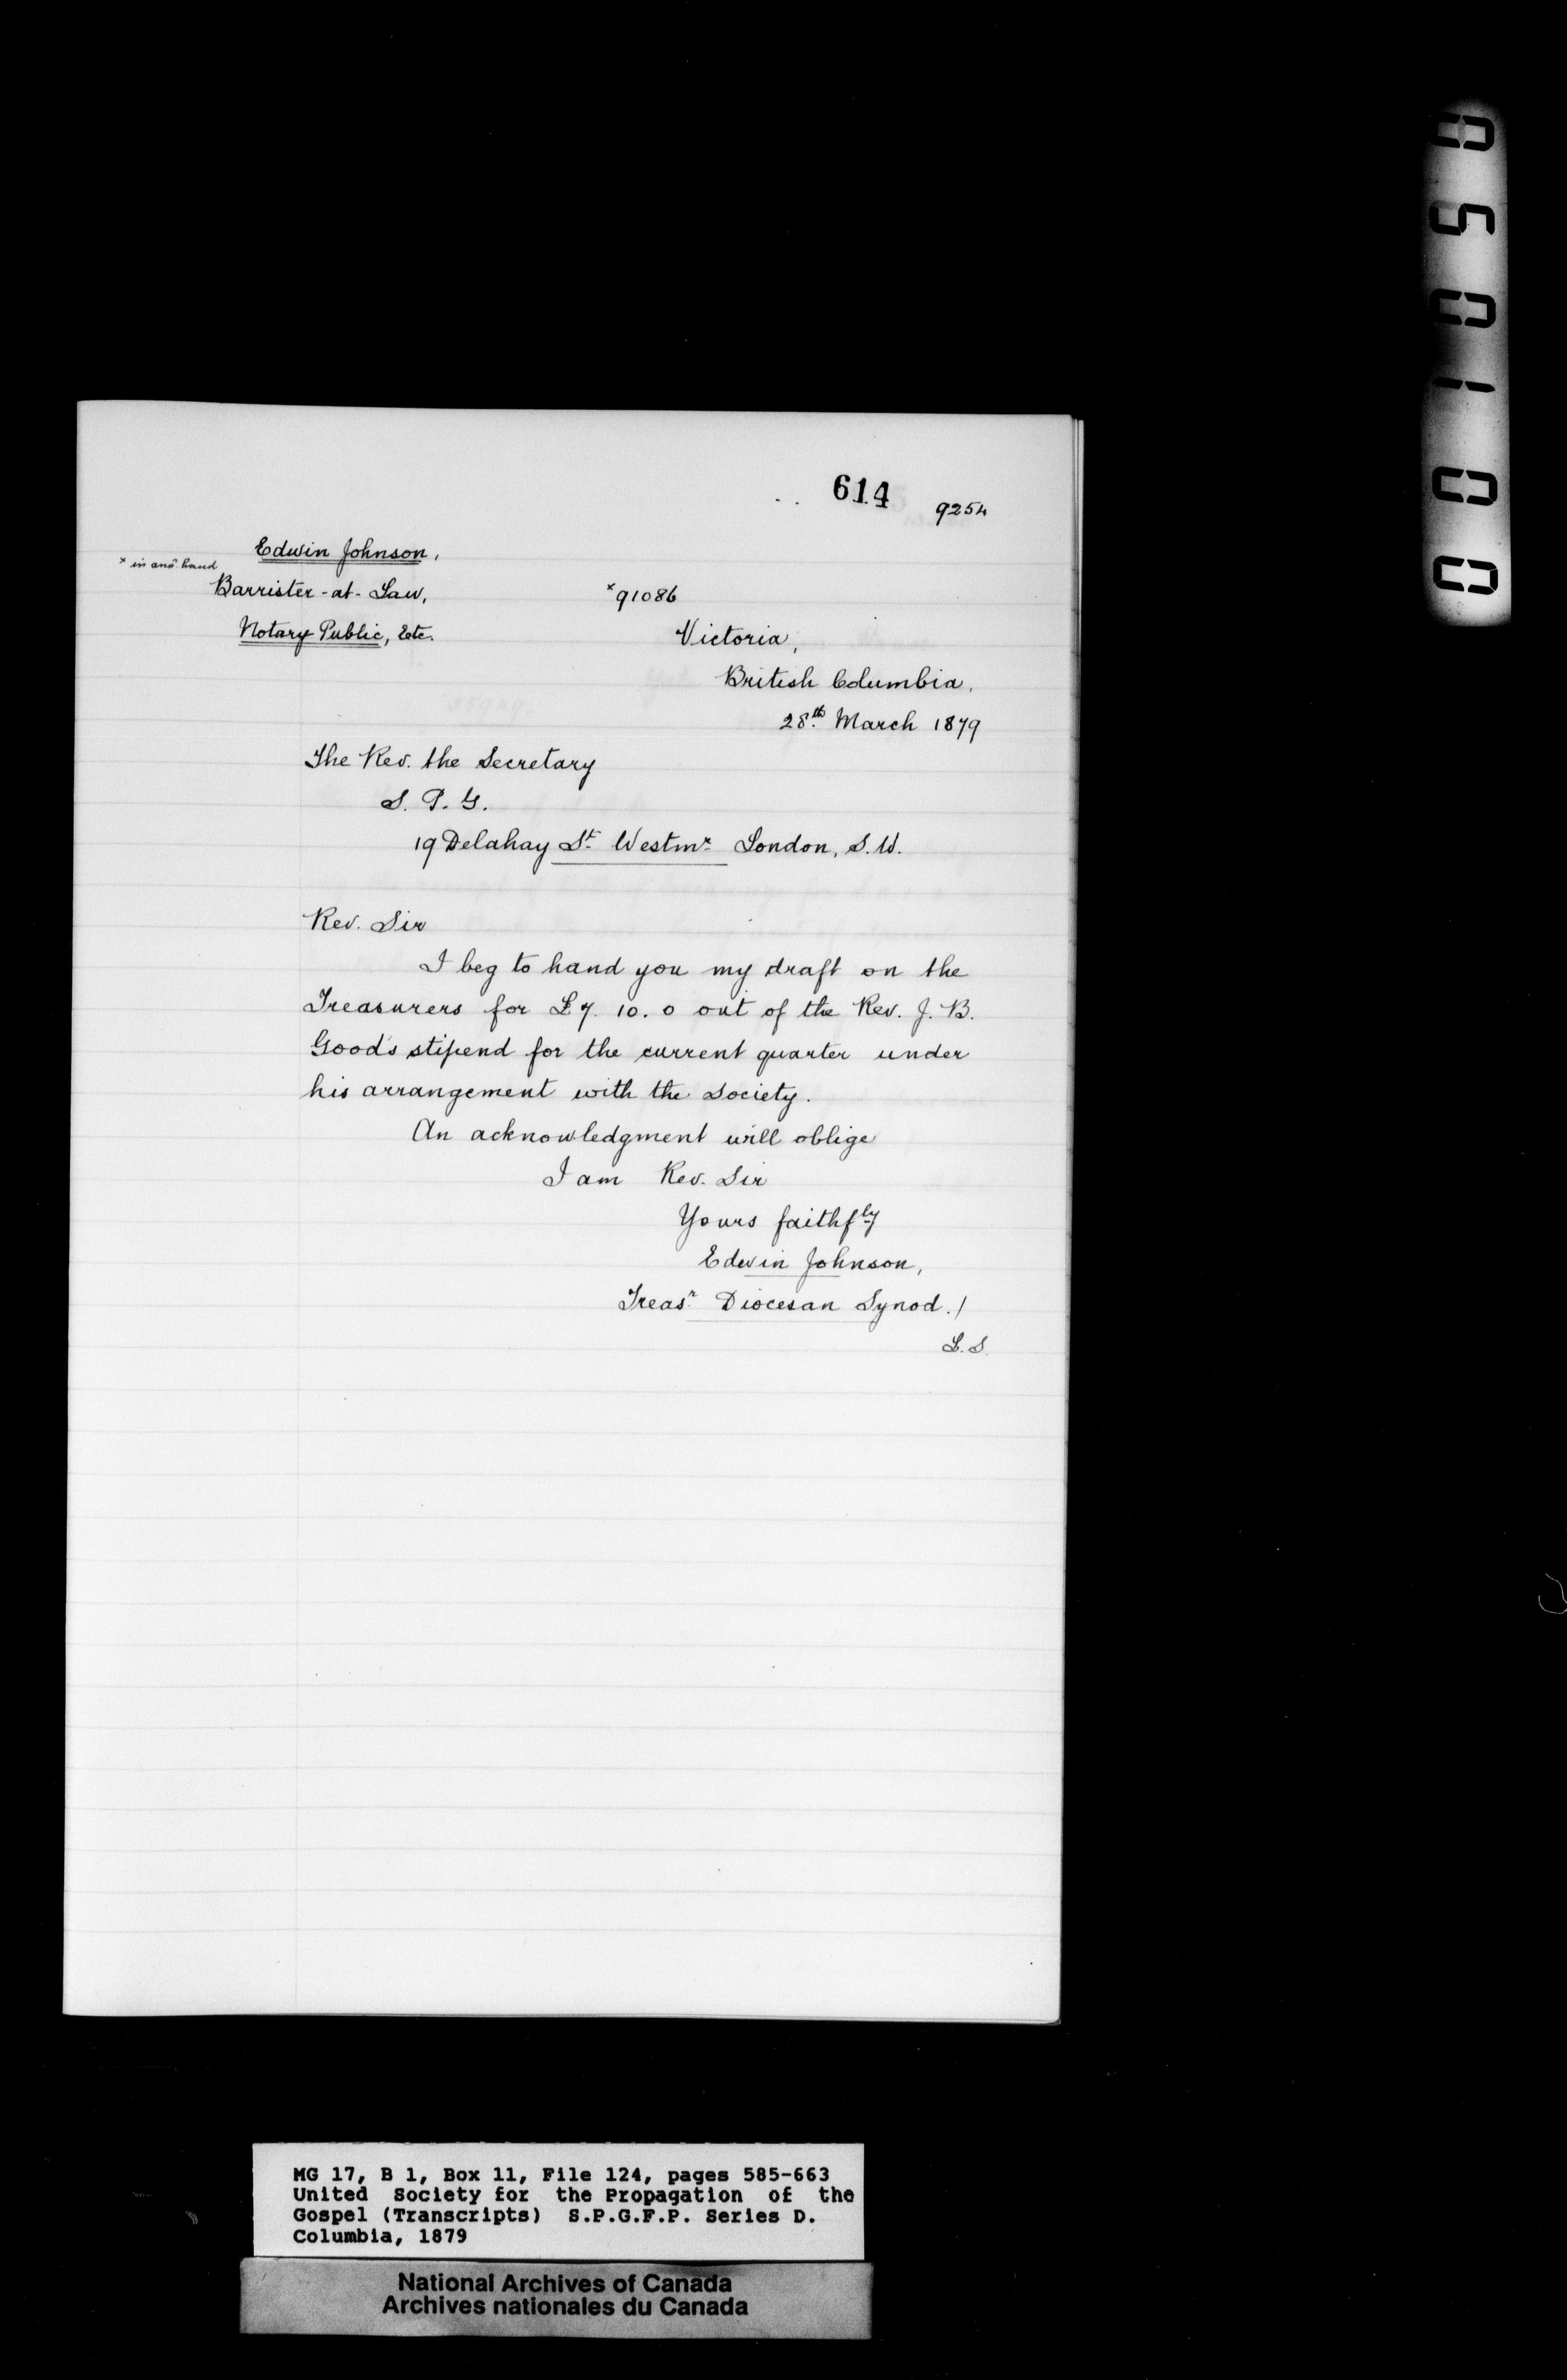 614
9254
Edwin Johnson,
x in anor. hand
Barrister-at-Law,
x91086
Notary Public, Etc.
Victoria,
British Columbia,
28.th March 1879
The Rev. the Secretary
S. P. G.
19 Delahay St. Westmr. London, S.W.
Rev. Sir
I beg to hand you my draft on the
Treasurers for £7. 10. 0 out of the Rev. J. B.
Good's stipend for the current quarter under
his arrangement with the Society.
An acknowledgment will oblige
I am Rev. Sir
Yours faithfly
Edwin Johnson,
Treasr. Diocesan Synod./
L.S.
MG 17, B 1, Box 11, File 124, pages 585-663
United Society for the Propagation of the
Gospel (Transcripts) S.P.G.F.P. Series D.
Columbia, 1879
National Archives of Canada
Archives nationales du Canada